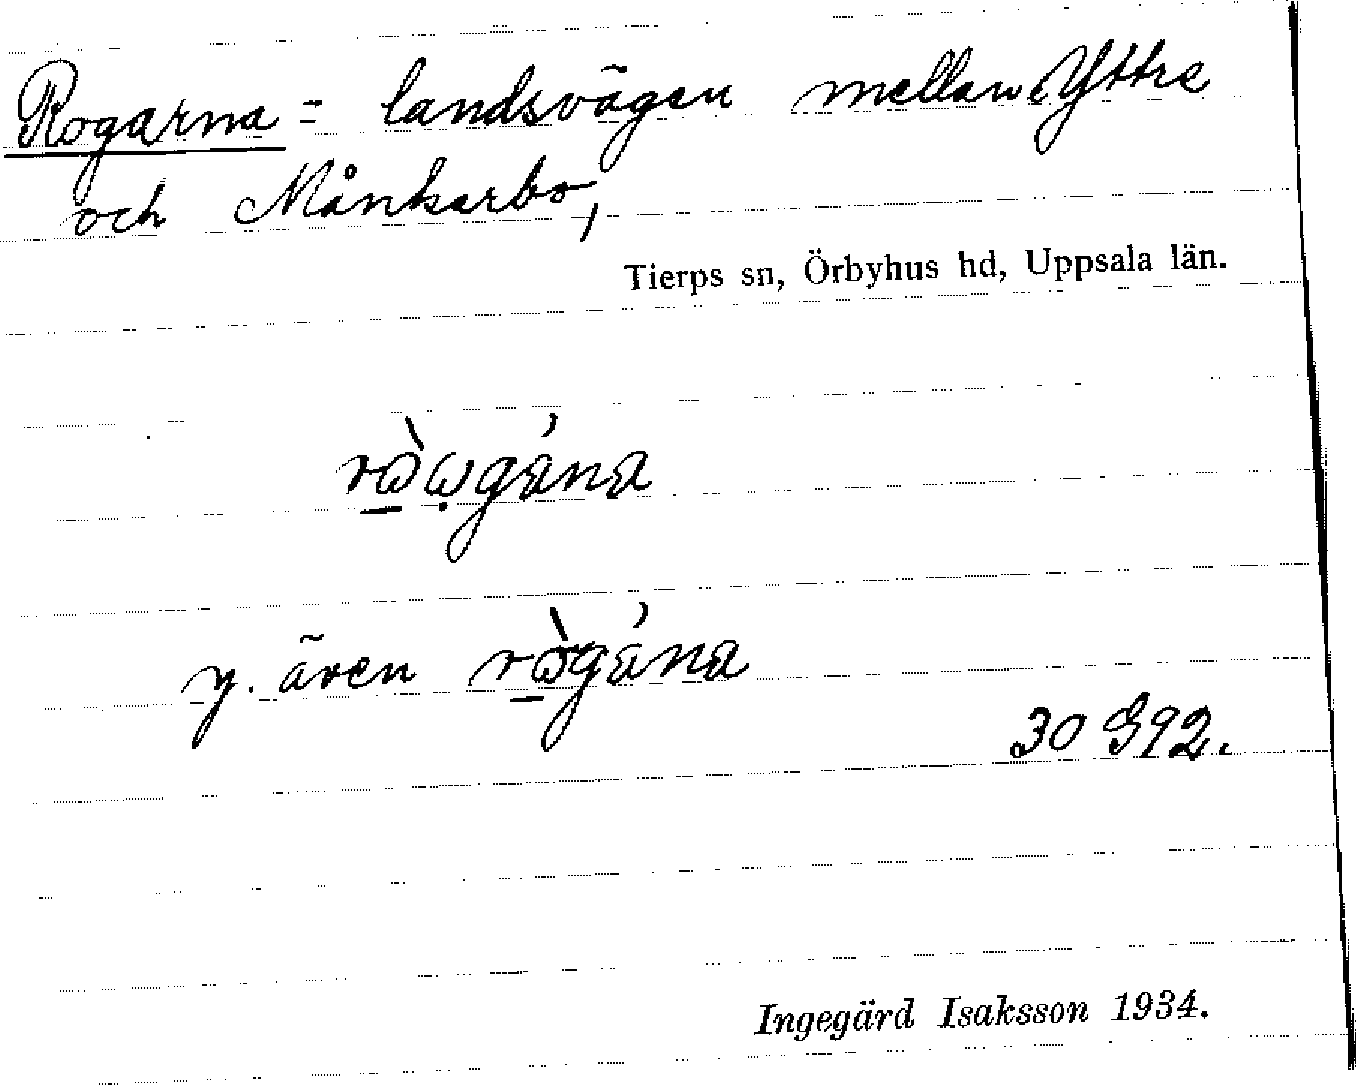 Rogarna = landsvägen mellan Yttre
och Månkarbo,
Tierps sn, Örbyhus hd, Uppsala län.
y. även
30 S92.
Ingegärd Isaksson 1934.